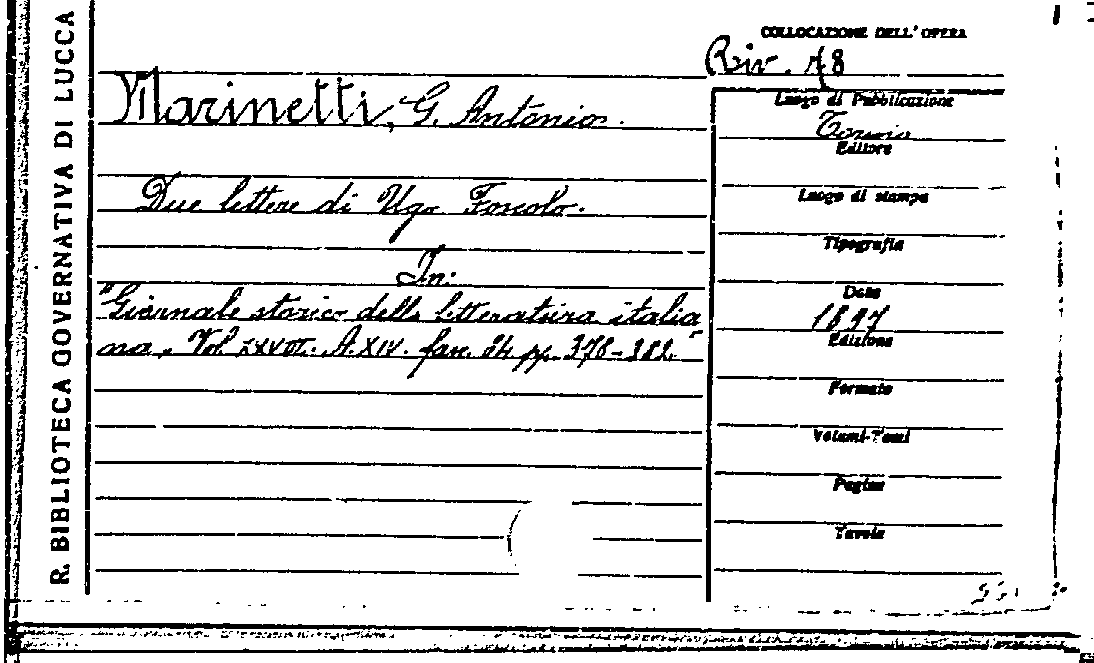 R. BIBLIOTECA GOVERNATIVA DI LUCCA
COLLOCAZIONE DELL'OPERA
Riv. 78
Marinetti, G. Antonio.
Due lettere di Ugo Foscolo.
In:
"Giornale storico della letteratura italia
na, Vol. A. XIV. fasc. 84 pp. 378-382."
Luogo di Pubblicazione
Torino
Editore
Luogo di stampa
Tipografia
Data
1897
Edizione
Formato
Volumi-Tomi
Pagine
Tavole